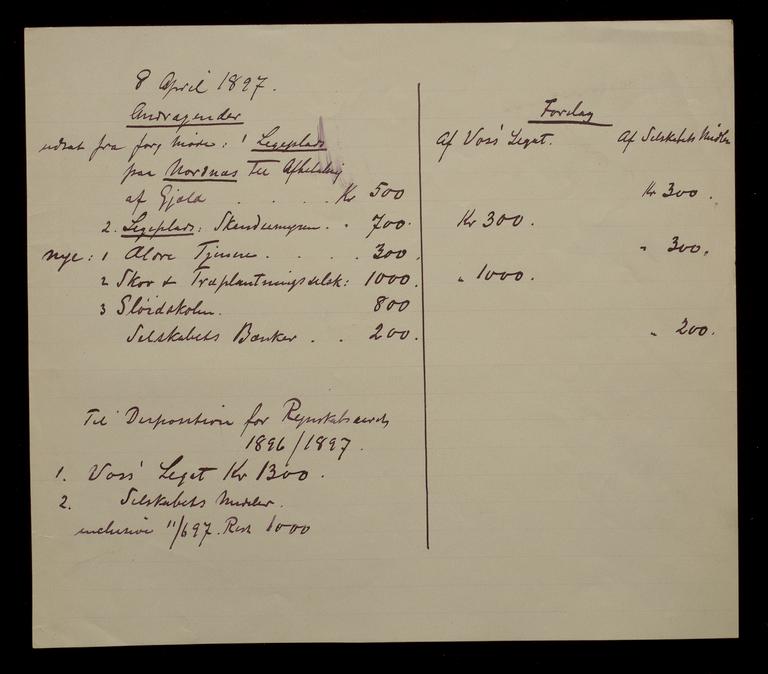 8 April 1897.
Andragender
Forslag
udsat fra forg møde: 1 Legeplads
Af Voss' Legat.
Af Selskabets Midler
paa Nordnæs til Afbetaling
af Gjæld . . . . Kr 500
Kr 300.
2. Legeplads: Skandsemyren . . 700.
Kr 300.
nye: 1 Aldre Tjenere . . . . 300.
" 300.
2 Skov & Træplantningsselsk: 1000.
" 1000.
3 Sløidskolen. 800
Selskabets Bænker . . 200.
" 200.
Til Disposition for Regnskabsaaret
1896/1897.
1. Voss' Legat Kr 1300.
2. Selskabets Midler.
inclusive 11/6 97. Rest 1000